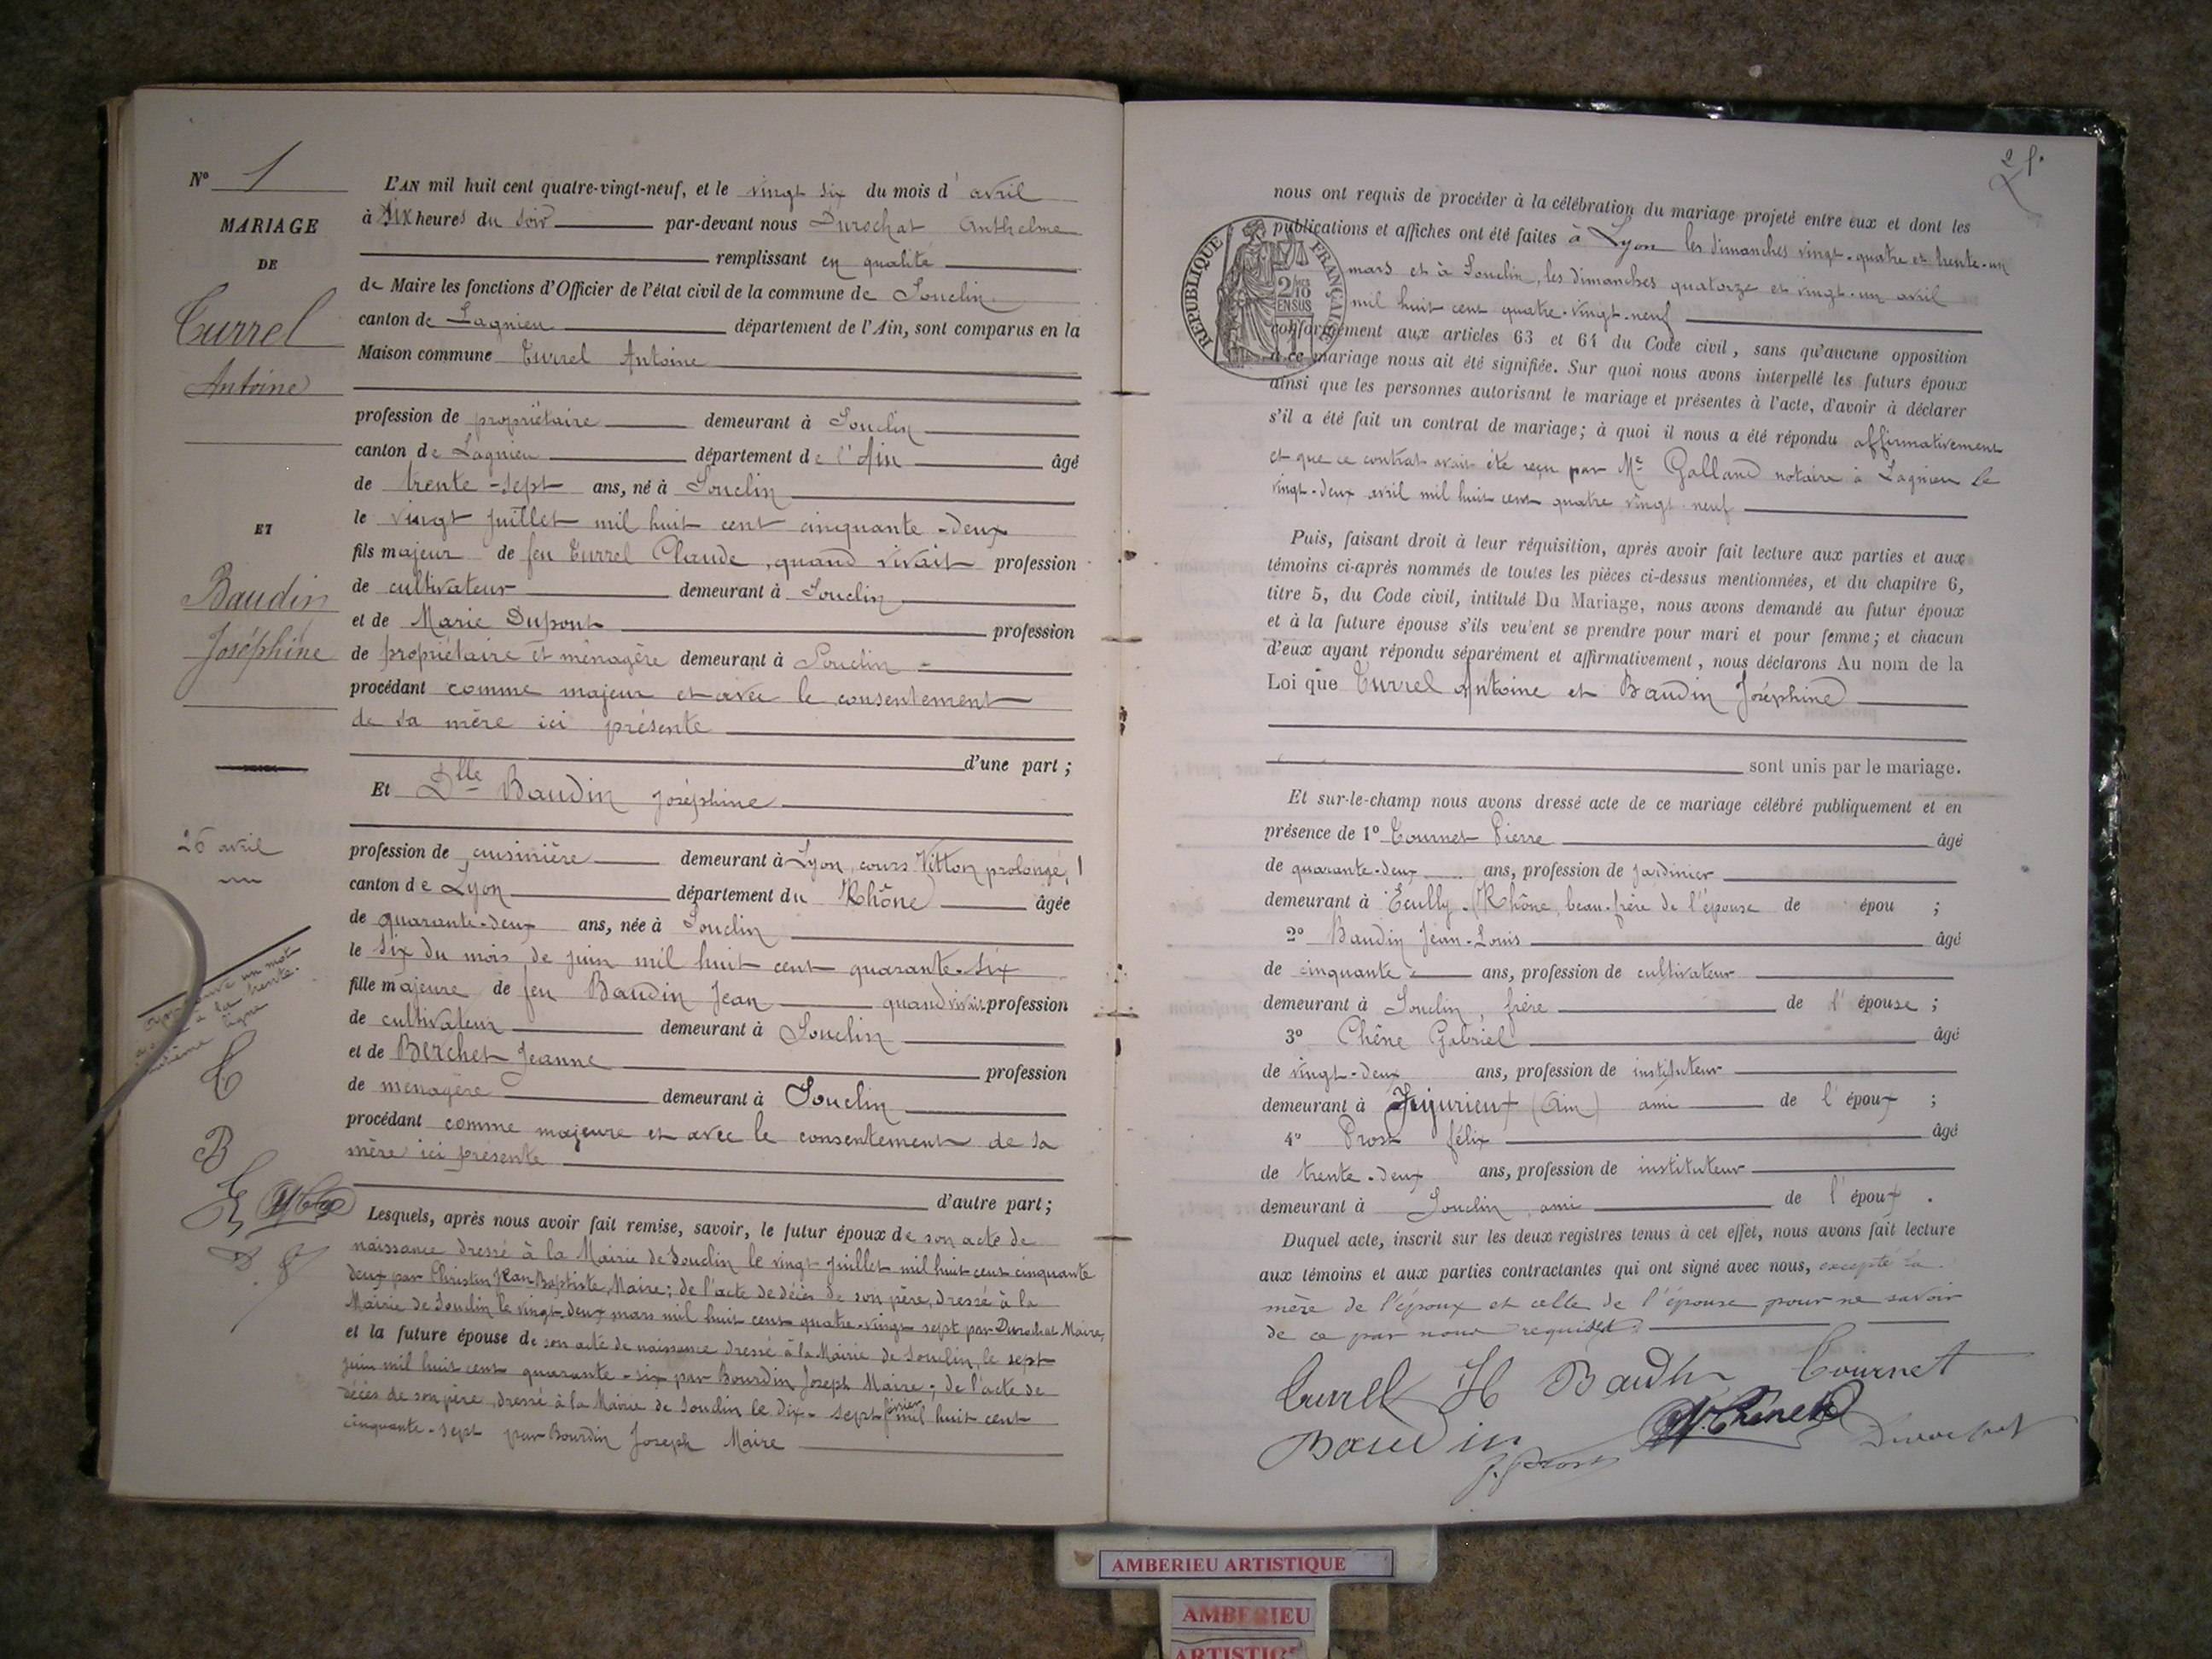 N° 1
MARIAGE
DE
Turrel
Antoine
ET
Baudin
Joséphine
26 avril
un mot
à la trente
ligne
T
B
L'AN mil huit cent quatre-vingt-neuf, et le vingt six du mois d'avril
à six heures du soir par-devant nous Durochat Anthelme
remplissant en qualité
de Maire les fonctions d'Officier de l'état civil de la commune de Souclin
canton de Lagnieu département de l'Ain, sont comparus en la
Maison commune Turrel Antoine
profession de propriétaire demeurant à Souclin
canton de Lagnieu département de l'Ain âgé
de trente-sept ans, né à Souclin
le vingt juillet mil huit cent cinquante-deux
fils majeur de feu Turrel Claude, quand vivait profession
de cultivateur demeurant à Souclin
et de Marie Dupont profession
de propriétaire et ménagère demeurant à Souclin
procédant comme majeur et avec le consentement
de sa mère ici présente
d'une part;
Et Dlle Baudin Joséphine
profession de cuisinière demeurant à Lyon, cours Vitton prolongé, 1
canton de Lyon département du Rhône âgée
de quarante-deux ans, née à Souclin
le six du mois de juin mil huit cent quarante-six
fille majeure de feu Baudin Jean quand vivait profession
de cultivateur demeurant à Souclin
et de Berchet Jeanne profession
de ménagère demeurant à Souclin
procédant comme majeure et avec le consentement de sa
mère ici présente
d'autre part;
Lesquels, après nous avoir fait remise, savoir, le futur époux de son acte de
naissance dressé à la Mairie de Souclin le vingt juillet mil huit cent cinquante
deux par Christin Jean Baptiste, Maire; de l'acte de décès de son père, dressé à la
Mairie de Souclin le vingt-deux mars mil huit cent quatre-vingt sept par Durochat Maire,
et la future épouse de son acte de naissance dressé à la Mairie de Souclin, le sept
juin mil huit cent quarante-six par Bourdin Joseph Maire; de l'acte de
décès de son père, dressé à la Mairie de Souclin le dix-sept février mil huit cent
cinquante-sept par Bourdin Joseph Maire
2
nous ont requis de procéder à la célébration du mariage projeté entre eux et dont les
publications et affiches ont été faites à Lyon les dimanches vingt-quatre et trente-un
mars et à Souclin, les dimanches quatorze et vingt-un avril
mil huit cent quatre-vingt-neuf
REPUBLIQUE FRANÇAISE
2/10 EN SUS
conformément aux articles 63 et 64 du Code civil, sans qu'aucune opposition
à ce mariage nous ait été signifiée. Sur quoi nous avons interpellé les futurs époux
ainsi que les personnes autorisant le mariage et présentes à l'acte, d'avoir à déclarer
s'il a été fait un contrat de mariage; à quoi il nous a été répondu affirmativement
et que ce contrat avait été reçu par Me Galland notaire à Lagnieu le
vingt-deux avril mil huit cent quatre vingt-neuf
Puis, faisant droit à leur réquisition, après avoir fait lecture aux parties et aux
témoins ci-après nommés de toutes les pièces ci-dessus mentionnées, et du chapitre 6,
titre 5, du Code civil, intitulé Du Mariage, nous avons demandé au futur époux
et à la future épouse s'ils veulent se prendre pour mari et pour femme; et chacun
d'eux ayant répondu séparément et affirmativement, nous déclarons Au nom de la
Loi que Turrel Antoine et Baudin Joséphine
sont unis par le mariage.
Et sur-le-champ nous avons dressé acte de ce mariage célébré publiquement et en
présence de 1° Tournet Pierre âgé
de quarante-deux ans, profession de jardinier
demeurant à Ecully (Rhône, beau-frère de l'épouse de épou ;
2° Baudin Jean-Louis âgé
de cinquante ans, profession de cultivateur
demeurant à Souclin, frère de l'épouse ;
3° Chêne Gabriel âgé
de vingt-deux ans, profession de instituteur
demeurant à Jujurieux (Ain) ami de l'époux ;
4° Prost félix âgé
de trente-deux ans, profession de instituteur
demeurant à Souclin, ami de l'époux .
Duquel acte, inscrit sur les deux registres tenus à cet effet, nous avons fait lecture
aux témoins et aux parties contractantes qui ont signé avec nous, excepté la
mère de l'époux et celle de l'épouse pour ne savoir
de ce par nous requises
Turrel Baudin Tournet
Baudin Chêne Durochat
F. Prost
AMBERIEU ARTISTIQUE
AMBERIEU
ARTISTIQUE